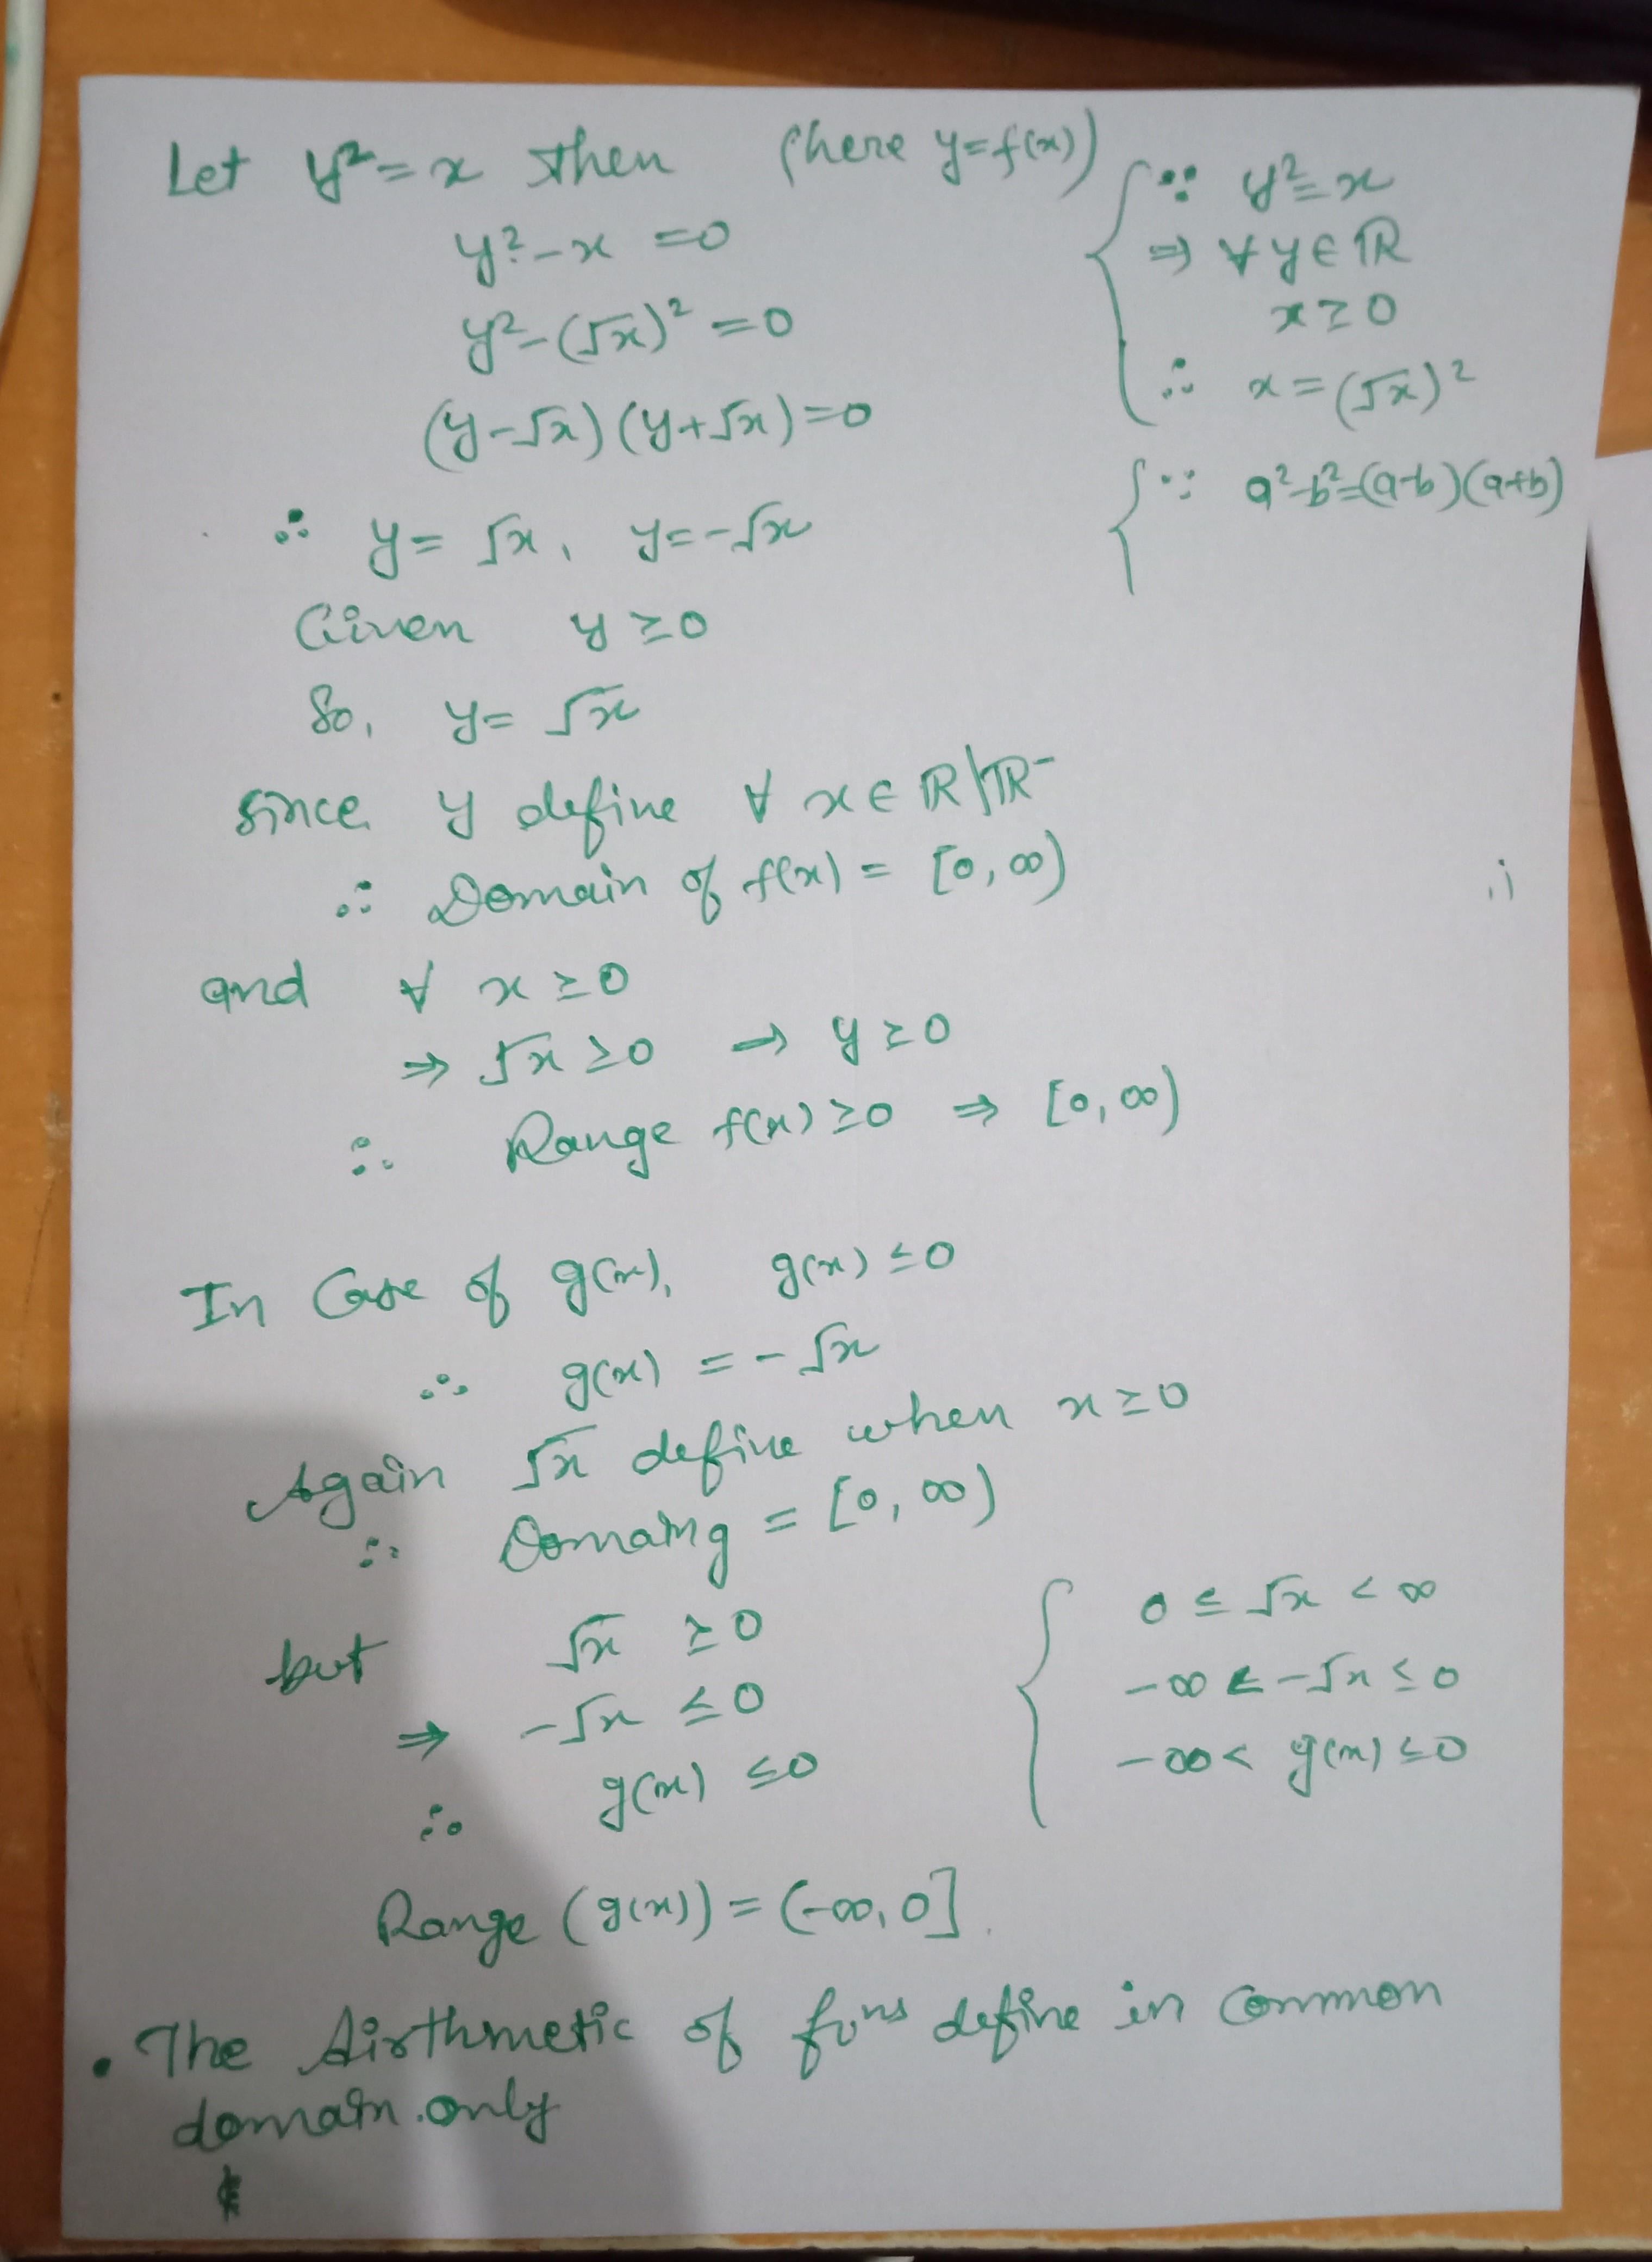 Let y² = x then (here y=f(x))
y² - x = 0
y² - (√x)² = 0
(y-√x)(y+√x)=0
∵ y² = x
⇒ ∀ y ∈ ℝ
x ≥ 0
∴ x = (√x)²
∵ a²-b²=(a-b)(a+b)
∴ y = √x, y=-√x
Given y ≥ 0
So, y = √x
since y define ∀ x ∈ ℝ\ℝ⁻
∴ Domain of f(x) = [0, ∞)
and ∀ x ≥ 0
⇒ √x ≥ 0 → y ≥ 0
∴ Range f(x) ≥ 0 ⇒ [0, ∞)
In Case of g(x), g(x) ≤ 0
∴ g(x) = - √x
Again √x define when x ≥ 0
∴ Domaing = [0, ∞)
but √x ≥ 0
⇒ -√x ≤ 0
∴ g(x) ≤ 0
0 ≤ √x < ∞
-∞ < -√x ≤ 0
-∞ < g(x) ≤ 0
Range (g(x)) = (-∞, 0].
• The Airthmetic of funs define in Common
domain only